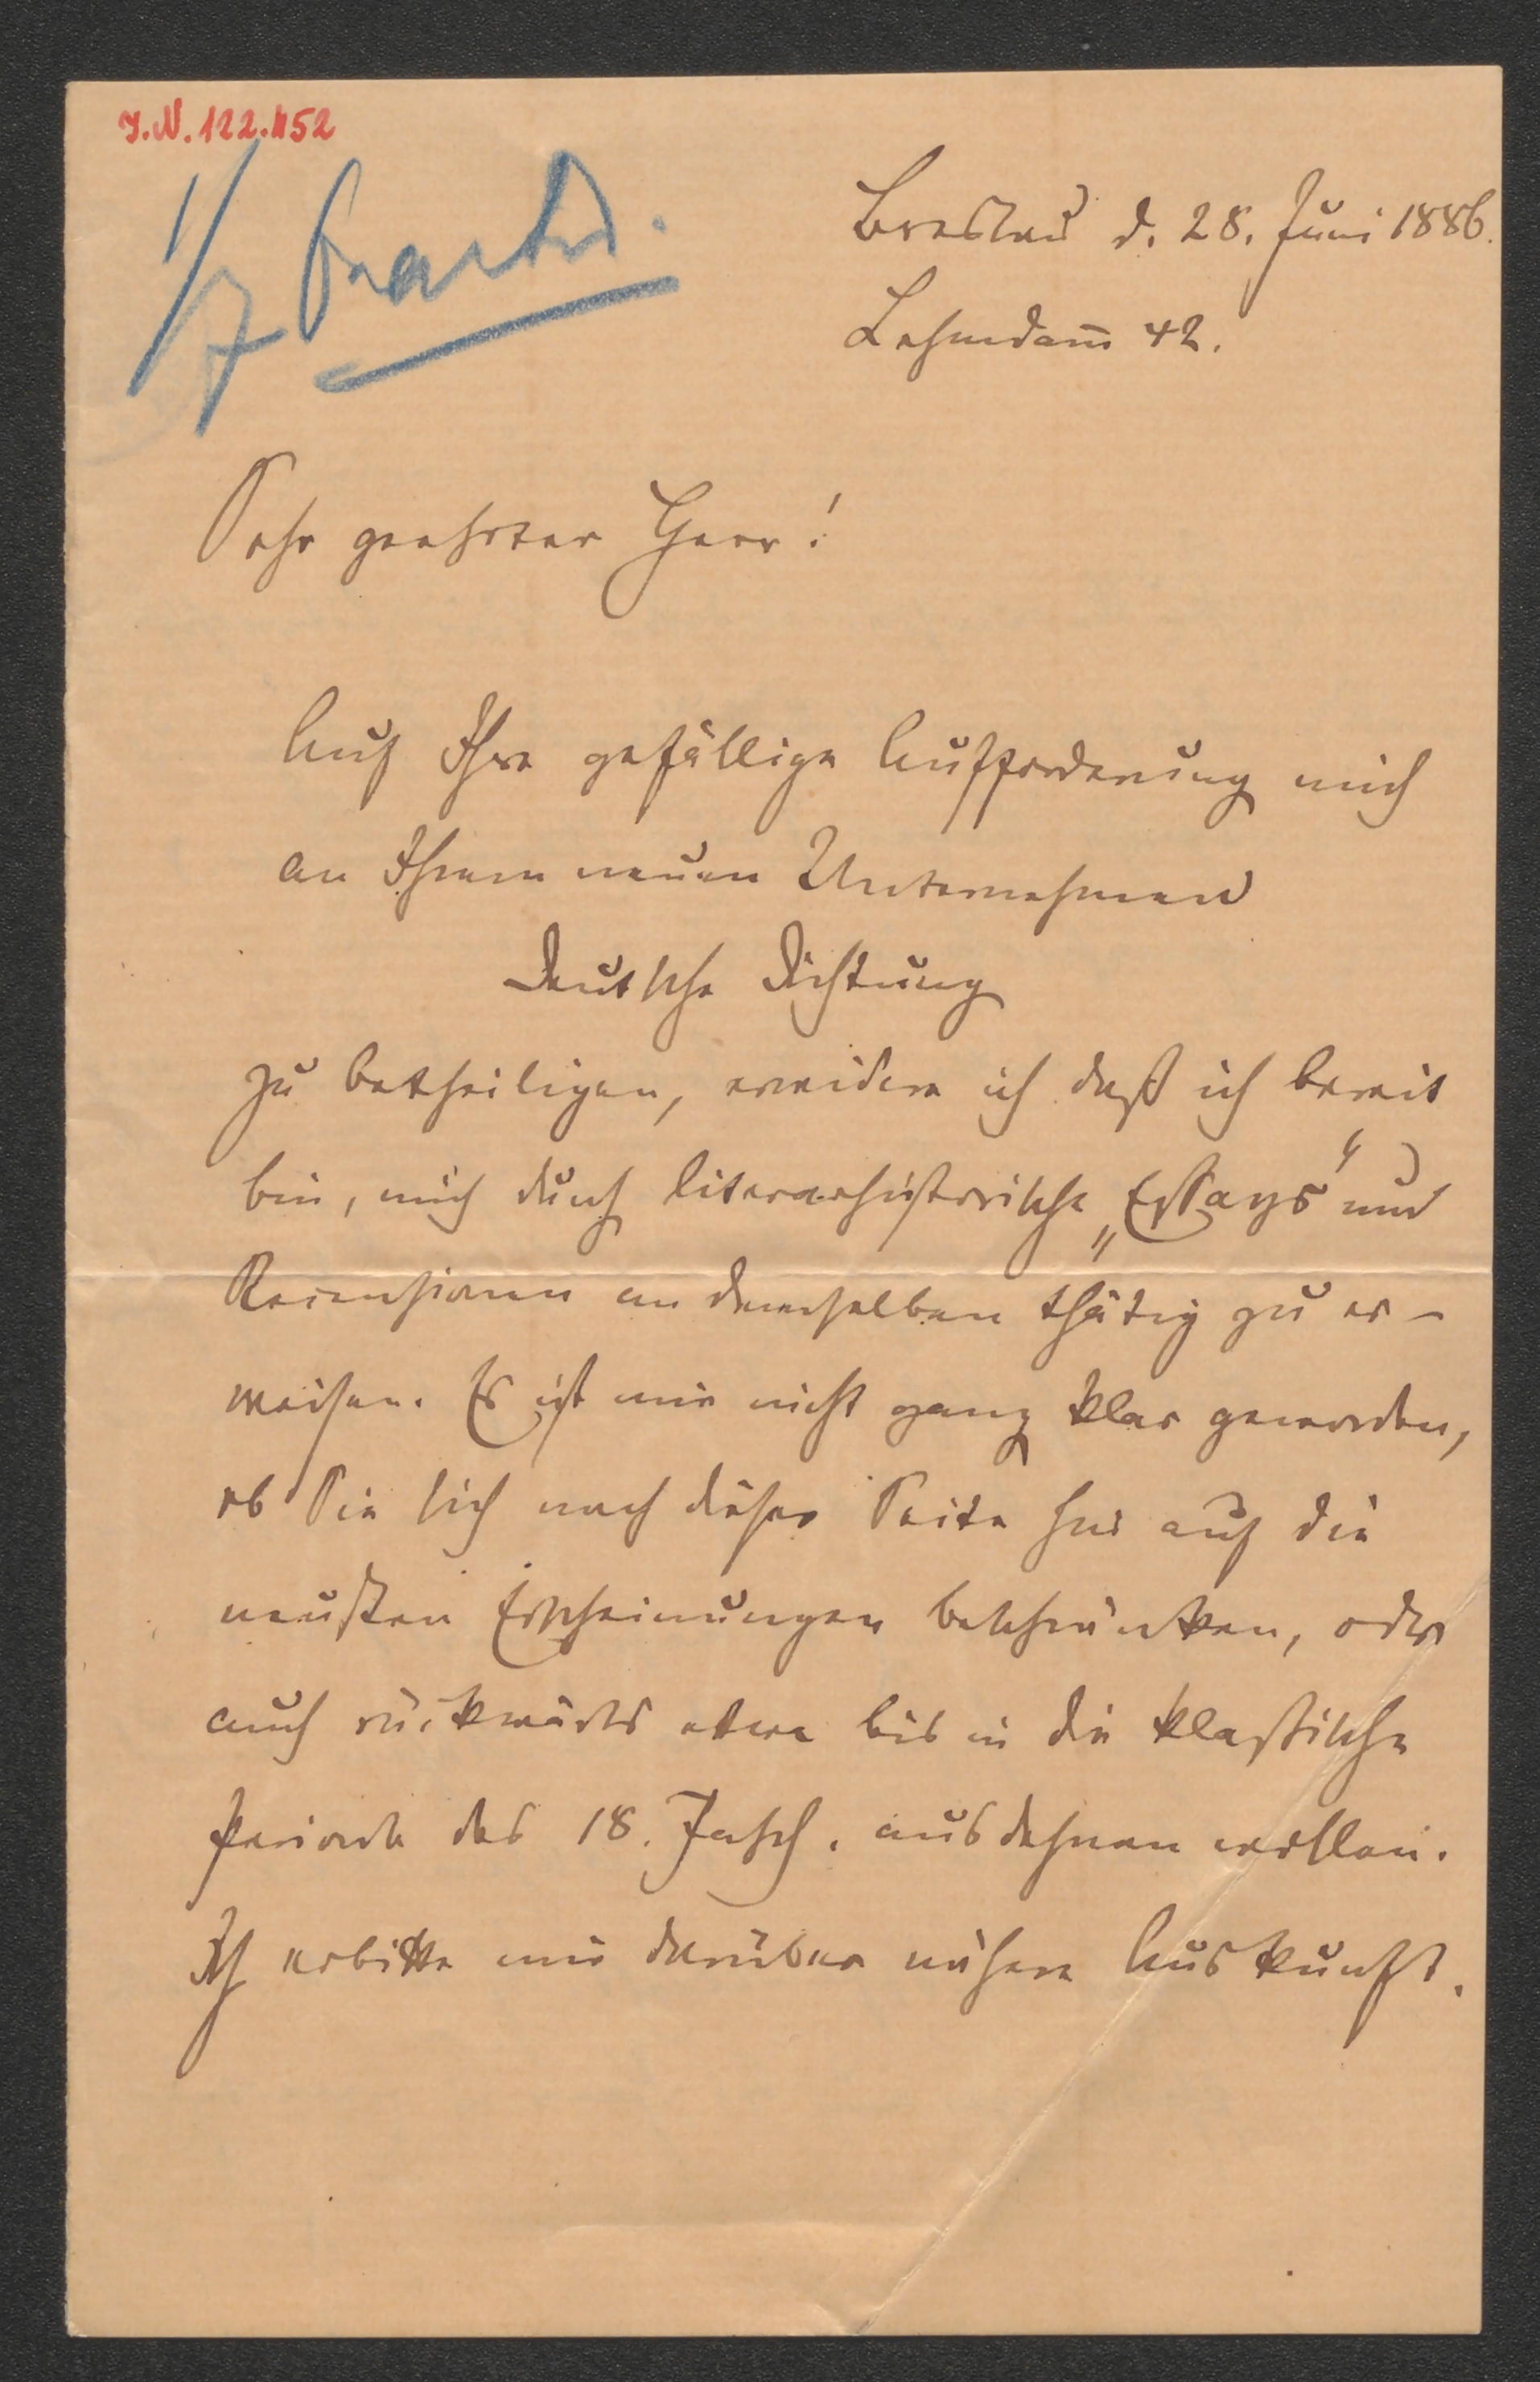 J.N. 122.452
1/7 beantw.
Breslau d. 28. Juni 1886.
Lehmdam̄ 42.
Sehr geehrter Herr!
Auf Ihre gefällige Aufforderung mich
an Ihrem neuen Unternehmen
Deutsche Dichtung
zu betheiligen, erwidere ich daß ich bereit
bin, mich durch literarhistorische „Essays“ und
Recensionen an demselben thätig zu er-
weisen. Es ist mir nicht ganz klar geworden,
ob Sie sich nach dieser Seite hin auf die
neusten Erscheinungen beschränken, oder
auch rückwärts etwa bis in die klassische
Periode des 18. Jahrh. ausdehnen wollen.
Ich erbitte mir darüber nähere Auskunft.